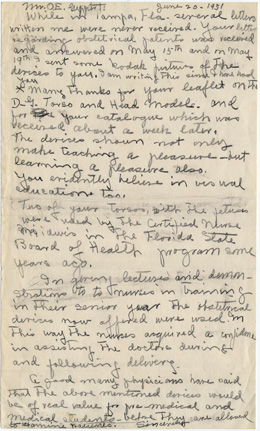 Mr. O.E. June 20-1931
While in Tampa, Fla. several letters
written me were never received. Your letter
regarding obstetrical patents was received
and answered on May 15th and on May
19th I sent some Kodak pictures of the
devices to you. I am writing this since I have
you
Many thanks for your leaflet on the
Torso and Head Models. and
for your catalogue which was
received about a week later.
The devices shown not only
make teaching a pleasure - but
learning a pleasure also.
You evidently believe in visual
education too.
Two of your Torsos, with the fetuses
were used by the Certified Nurse
Midwives in the Florida State
Board of Health program some
years ago.
In giving lectures and demon-
strations to nurses in training
in their senior year the obstetrical
devices now offered were used in
This way the nurses acquired a confidence
in assisting the doctors during
and following delivery.
A good many physicians have said
that the above mentioned devices would
be of real value for pre-medical and
medical students - before they are allowed
to examine patients. Sincerely